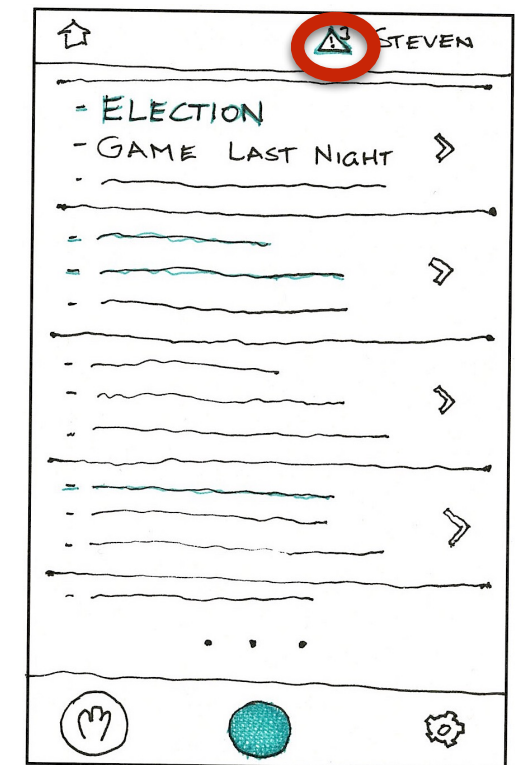 3 STEVEN
- ELECTION
- GAME LAST NIGHT